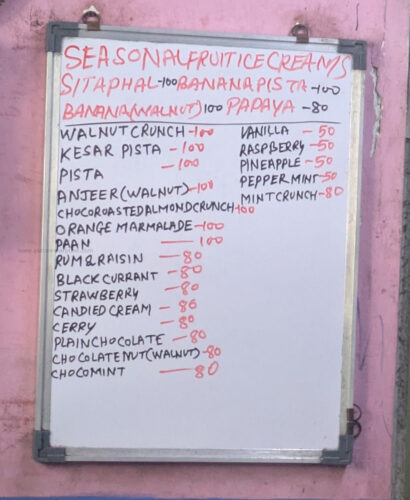 SEASONAL FRUIT ICE CREAMS
SITAPHAL-100 BANANA PISTA-100
BANANA(WALNUT)100 PAPAYA -80
WALNUT CRUNCH-100
KESAR PISTA -100
PISTA -100
ANJEER(WALNUT)-100
CHOCOROASTED ALMOND CRUNCH-100
ORANGE MARMALADE-100
PAAN -100
RUM&RAISIN -80
BLACK CURRANT -80
STRAWBERRY -80
CANDIED CREAM -80
CERRY -80
PLAIN CHOCOLATE -80
CHOCOLATE NUT(WALNUT)-80
CHOCOMINT -80
VANILLA -50
RASPBERRY-50
PINEAPPLE-50
PEPPERMINT-50
MINT CRUNCH-80